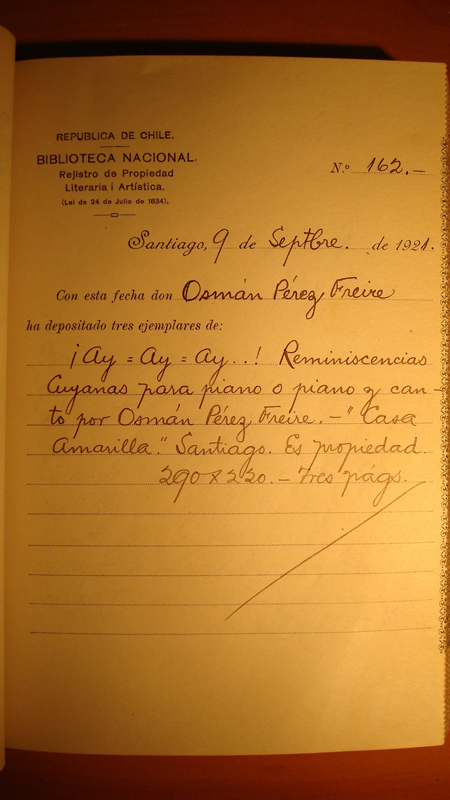 REPUBLICA DE CHILE.
BIBLIOTECA NACIONAL.
Rejistro de Propiedad
Literaria i Artística.
(Lei de 24 de Julio de 1834).
N.º 162.-
Santiago, 9 de Septbre. de 1921.
Con esta fecha don Osmán Pérez Freire
ha depositado tres ejemplares de:
¡Ay = Ay = Ay..! Reminiscencias
Cuyanas para piano o piano y can-
to por Osmán Pérez Freire. - "Casa
Amarilla." Santiago. Es propiedad.
290 x 220. - Tres págs.